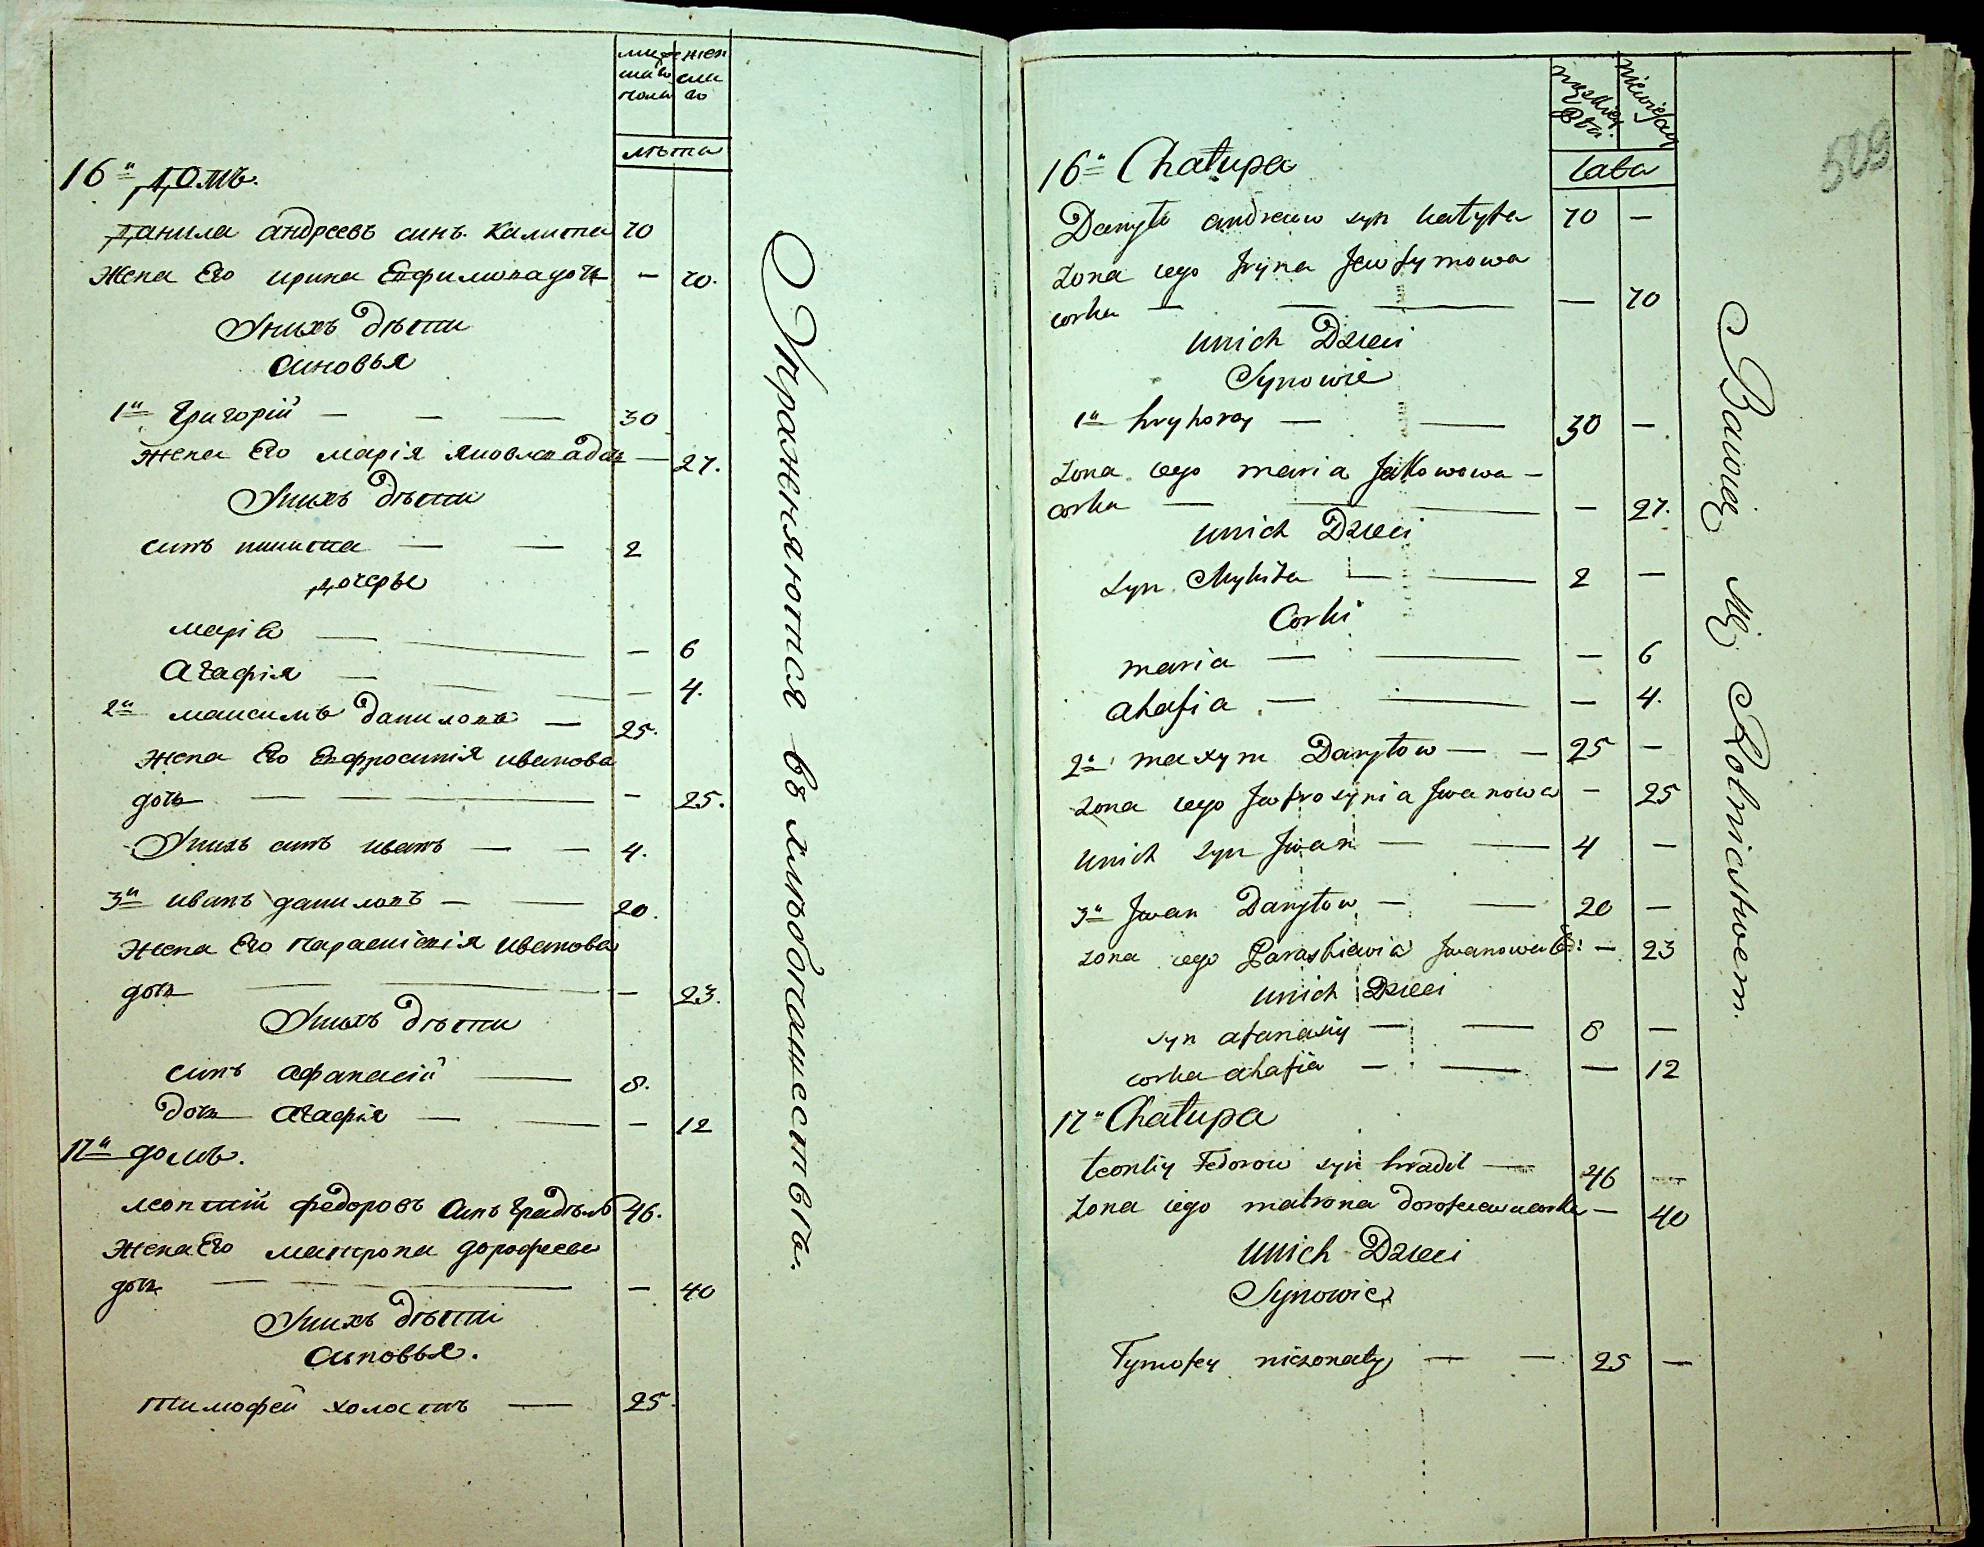 мужеска пола
женска го
лѣта
16й домъ.
Данила андреевъ синъ Калита 70
Жена Его ирина Евфимова дочь — 70.
У нихъ дѣти
синовья
1й Григорій — — — 30
жена Его марія яковлева доч — 27.
У нихъ дѣти
синъ никита — — 2
дочеры
марія — — — 6
Агафія — — — 4.
2й максимъ даниловъ — 25.
жена Его Евфросинія иванова
дочь — — — — 25.
У нихъ синъ иванъ — — 4.
3й иванъ даниловъ — — 20.
жена Его параскісвія иванова
дочь — — — 23.
У нихъ дѣти
синъ афанасій — 8.
дочь агафія — — — 12
17й домъ.
леонтій федоровъ синъ Градѣль 46.
жена Его матрона дорофеева
дочь — — — 40
У нихъ дѣти
синовья.
тимофей холостъ — 25.
Упражняются въ хлѣбопашествѣ.
509
męzkiey Płci.
niewieścey
Lata
16a Chałupa
Danyło andreiow syn kałyta 70 —
Zona iego Iryna Jewfymowa
corka — — — — 70
unich Dzieci
Synowie
1y hryhorey — — 30 —
Zona iego maria Jakowowa —
corka — — — — 27.
unich Dzieci
syn Mykita — — 2 —
Corki
maria — — — 6
ahafia — — — 4.
2y maxym Danyłow — — 25 —
Zona iego Jwfrosynia Jwanowa — 25
unich syn Jwan — — 4 —
3y Jwan Danyłow — — 20 —
Zona iego Paraskiewia Jwanowa C: — 23
unich Dzieci
syn afanasiy — — 8 —
corka ahafia — — — 12
17a Chałupa
Leontiy Fedorow syn hradil — 46 —
Zona iego matrona dorofeiewa corka — 40
unich Dzieci
Synowie
Tymofey niezonaty — — 25 —
Bawią Się Rolnictwem.